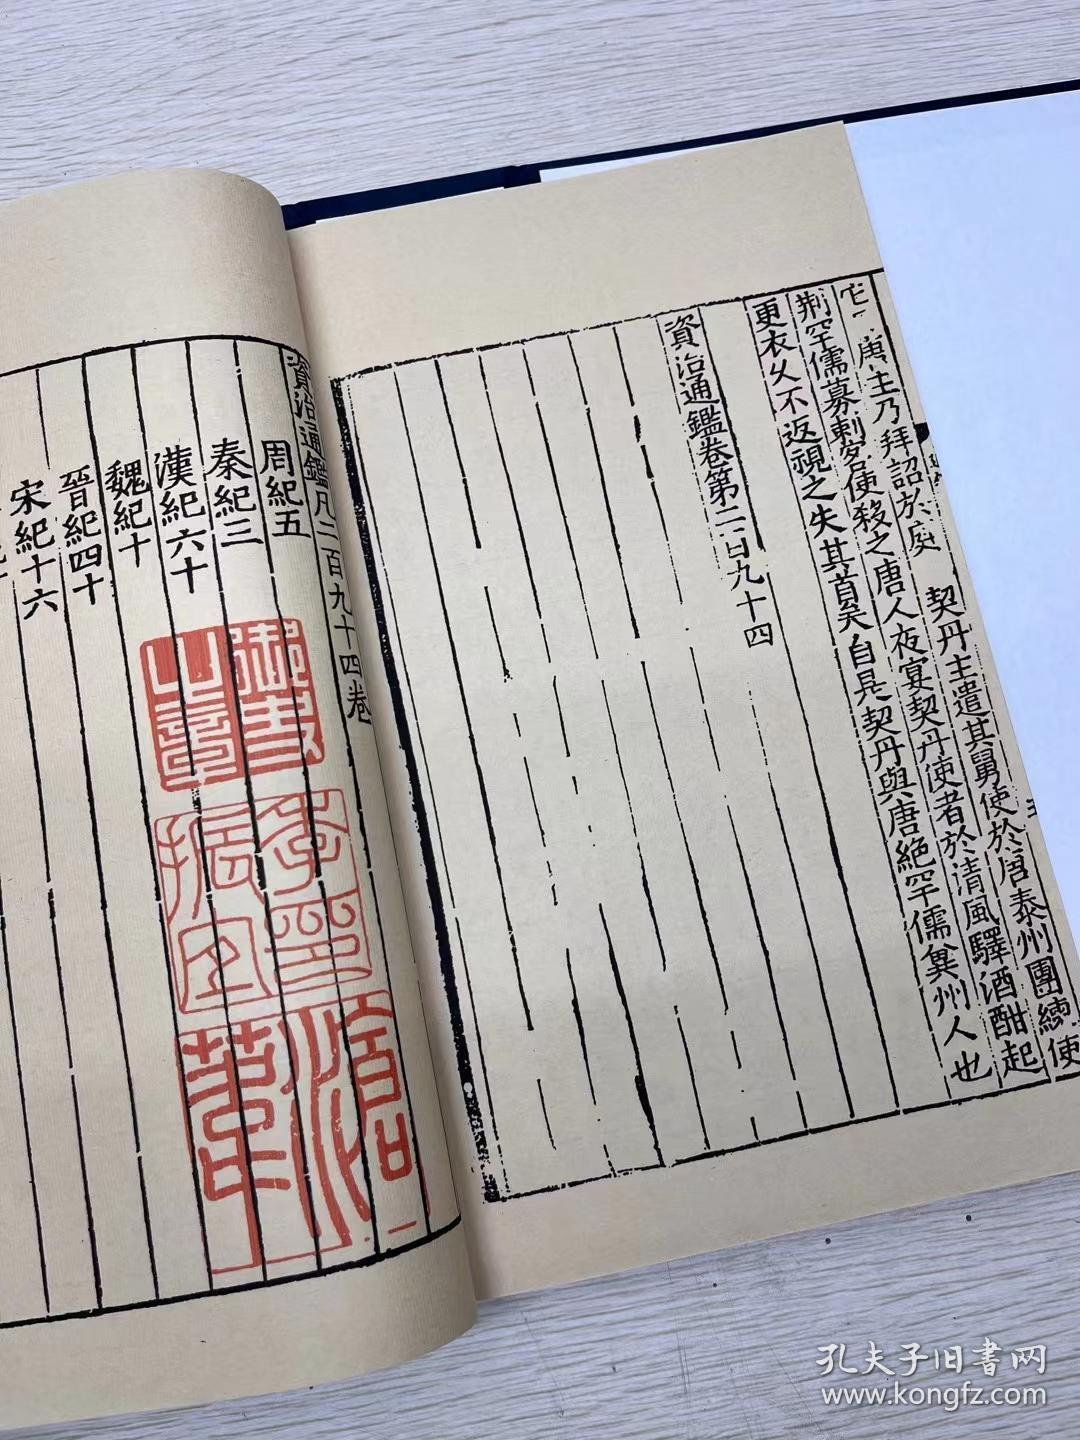 它唐主乃拜詔於庭　契丹主遣其舅使於唐泰州團練使
荆罕儒募刺客使殺之唐人夜宴契丹使者於清風驛酒酣起
更衣久不返視之失其首矣自是契丹與唐絶罕儒兾州人也
資治通鑑卷第二百九十四
資治通鑑凡二百九十四卷
周紀五
秦紀三
漢紀六十
魏紀十
晉紀四十
宋紀十六
御史之章
季振宜印
滄葦
孔夫子旧書网
www.kongfz.com